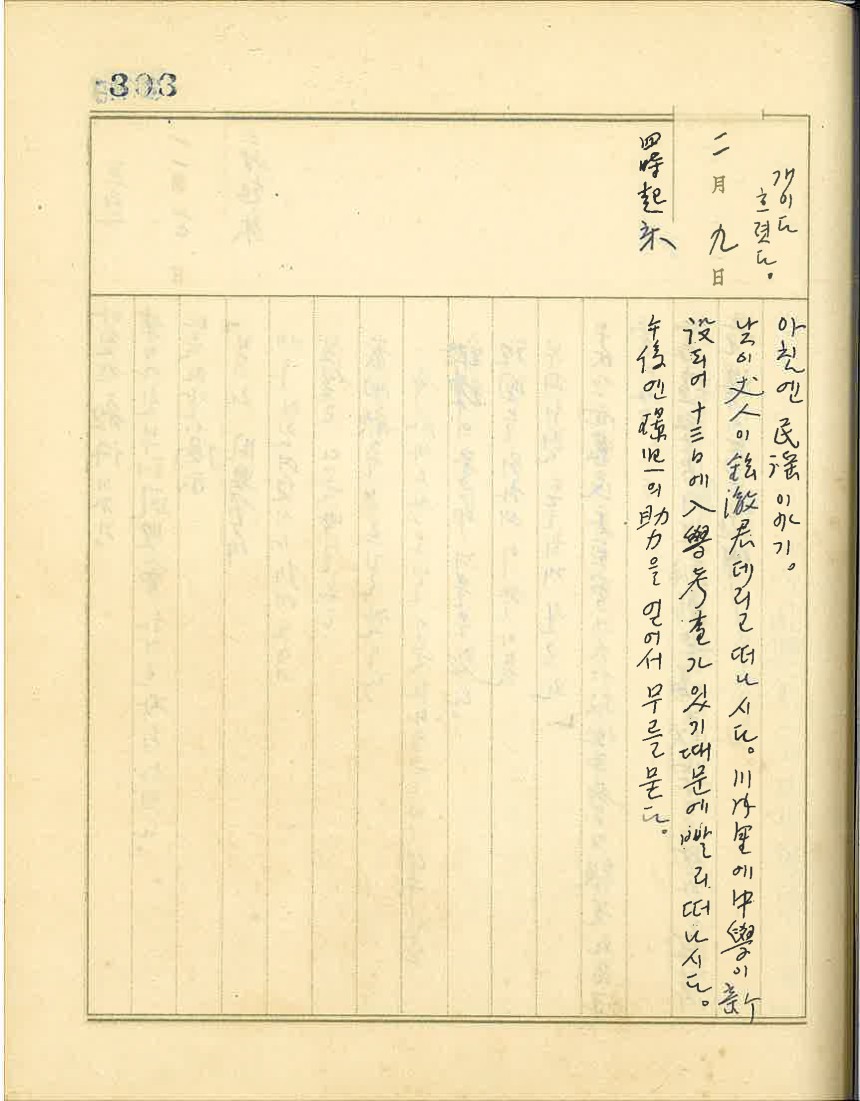 303
개이다
흐렸다。
二月九日
四時起床
아침엔 民謠 이야기。
낮이 丈人이 鉉澈君 데리고 떠나시다。 川沙里에 中學이 新
設되어 十三日에 入學考査가 있기때문에 빨리 떠나시다。
午後엔 璟姬의 助力을 얻어서 무를 묻다。